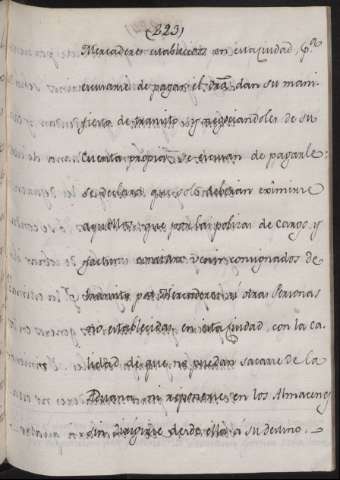 (823)
Mercaderes establecidos en esta Ciudad, q.e
escusando de pagar el dro, dan su mani-
fiesto de transito, y negociandoles de su
Cuenta propia se escusan de pagarle:
se declara que solo deberán eximirse
aquellos que por las polizas de cargo y
facturas constare venir consignados de
transito por Mercaderes, ú otras Personas
no establecidas en esta Ciudad, con la ca-
lidad de que no puedan sacarse de la
Aduana ni reponerse en los Almacenes
sin dirigirse desde ella á su destino.